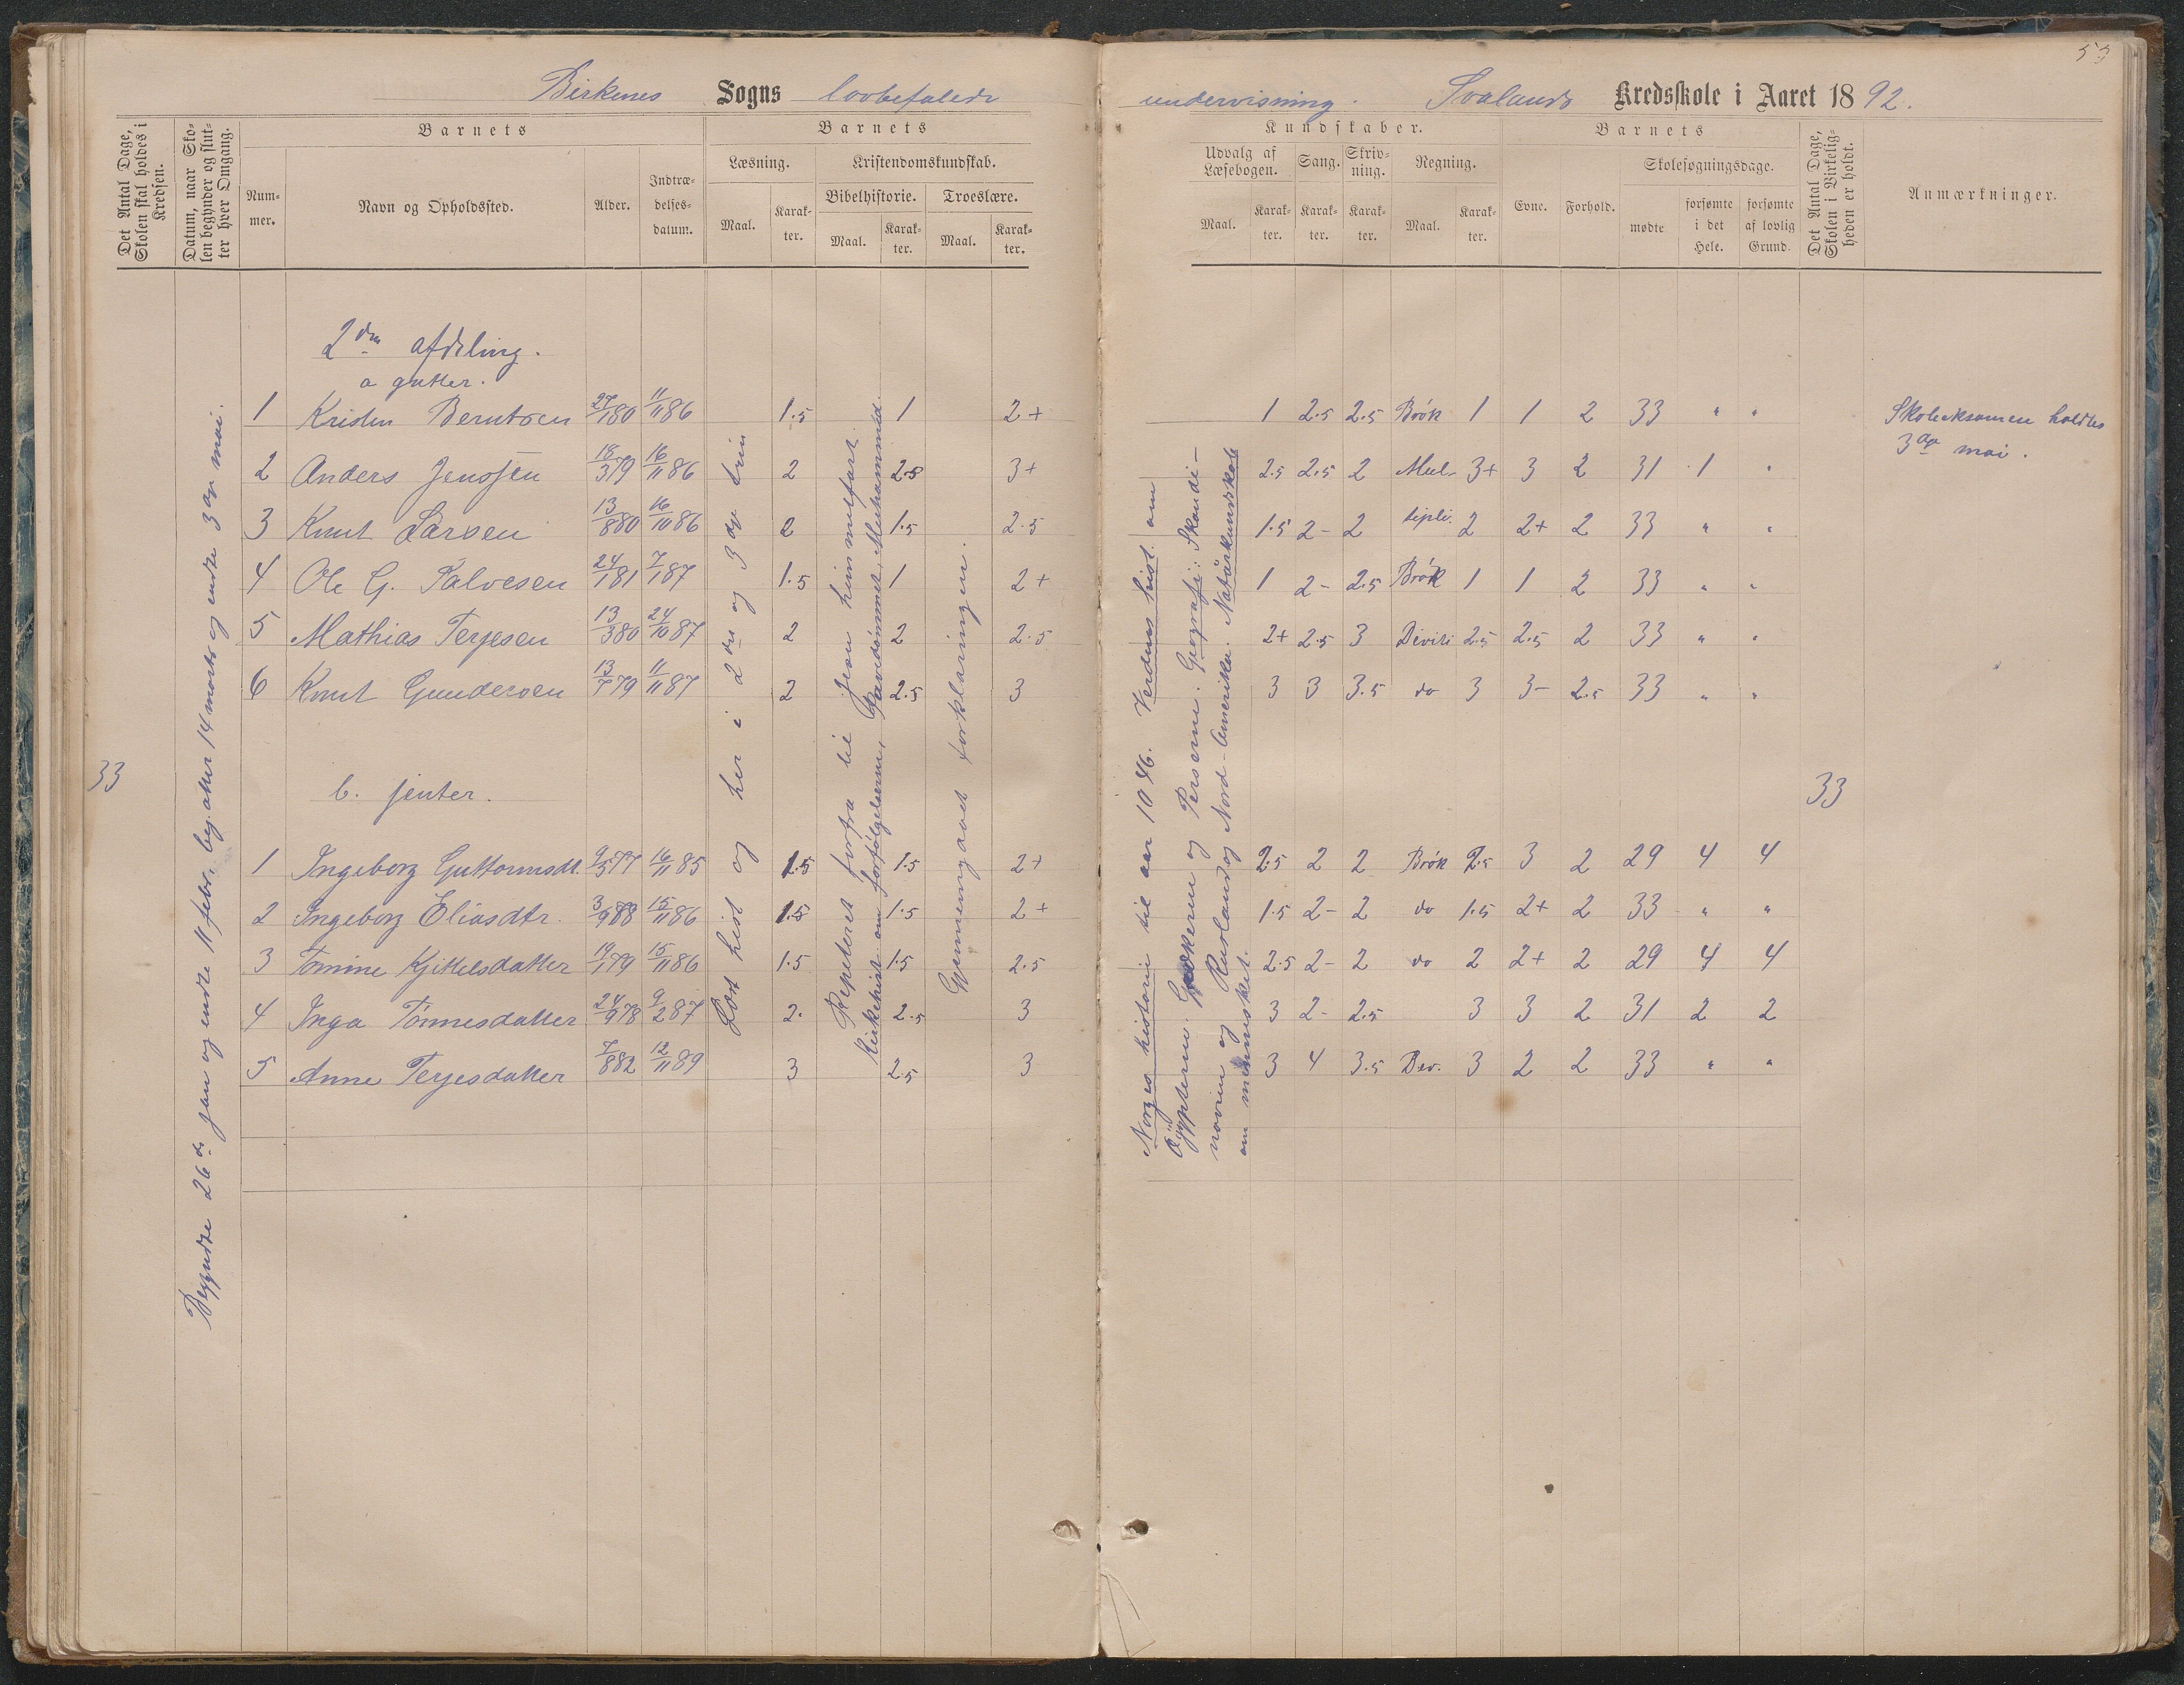 53
Birkenes Sogns lovbefalede undervisning. Svalands Kredsskole i Aaret 1892.
Det Antal Dage, Skolen skal holdes i Kredsen.
Datum, naar Skolen begynder og slutter hver Omgang.
Barnets
Nummer.
Navn og Opholdssted.
Alder.
Indtrædelsesdatum.
Barnets
Læsning.
Maal.
Karakter.
Kristendomskundskab.
Bibelhistorie.
Maal.
Karakter.
Troeslære.
Maal.
Karakter.
Kundskaber.
Udvalg af Læsebogen.
Maal.
Karakter.
Sang.
Karakter.
Skrivning.
Karakter.
Regning.
Maal.
Karakter.
Barnets
Evne.
Forhold.
Skolesøgningsdage.
mødte
forsømte i det Hele.
forsømte af lovlig Grund.
Det Antal Dage, Skolen i Virkeligheden er holdt.
Anmærkninger.
33
Begyndte 26de jan og endte 11 febr, beg. atter 14 marts og endte 3die mai.
2den afdeling.
a gutter.
1 Kristen Berntsen 27/1 80 11/11 86 1.5 1 2+ 1 2.5 2.5 Brök 1 1 2 33 " "
2 Anders Jenssen 18/3 79 16/11 86 2 2.5 3+ 2.5 2.5 2 Mul- 3+ 3 2 31 1 "
3 Knut Larsen 13/8 80 16/10 86 2 1.5 2.5 1.5 2- 2 tipli. 2 2+ 2 33 " "
4 Ole G. Talvesen 24/1 81 7/1 87 1.5 1 2+ 1 2- 2.5 Brök 1 1 2 33 " "
5 Mathias Terjesen 13/3 80 24/10 87 2 2 2.5 2+ 2.5 3 Divisi 2.5 2.5 2 33 " "
6 Knut Gundersen 13/7 79 11/11 87 2 2.5 3 3 3 3.5 do 3 3- 2.5 33 " "
b. jenter.
1 Ingeborg Guttormsdt. 9/5 77 16/11 85 1.5 1.5 2+ 2.5 2 2 Brök 2.5 3 2 29 4 4
2 Ingeborg Eliasdtr. 3/9 88 15/11 86 1.5 1.5 2+ 1.5 2- 2 do 1.5 2+ 2 33 " "
3 Tomine Kjittelsdatter 19/1 79 15/11 86 1.5 1.5 2.5 2.5 2- 2 do 2 2+ 2 29 4 4
4 Inga Tönnesdatter 24/9 78 9/2 87 2. 2.5 3 3 2- 2.5 3 3 2 31 2 2
5 Anne Terjesdatter 7/8 82 12/11 89 3 2.5 3 3 4 3.5 Div. 3 2 2 33 " "
Læst hist og her i 2det og 3die trin
Repeteret forfra til Jesu himmelfart.
Kirkehist. om forfølgelserne, Pavedömmet, Muhammed.
Gjennemgaaet forklaringen.
Norges historie til aar 1046. Verdens hist. om
Ægypterne. Grækerne og Perserne. Geografi: Skandi-
navien og Rusland og Nord-Amerika. Naturkundskab
om mennesket.
33
Skoleeksamen holdtes
3die mai.